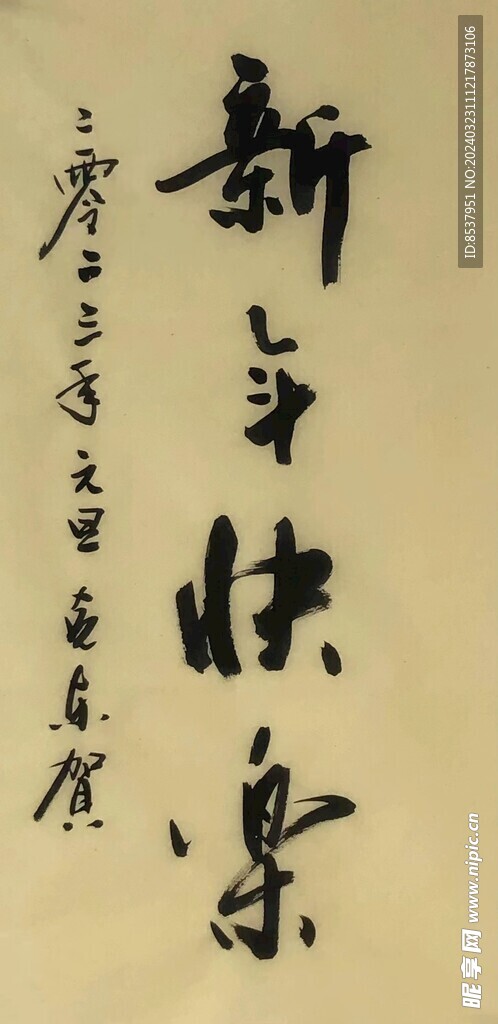 新年快樂
二零二三年元旦克東賀
ID:8537951 NO:20240323111217873106
昵享网 www.nipic.cn